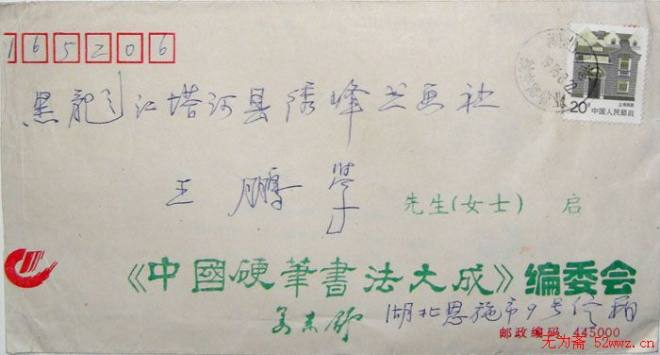 165206
20分
中国人民邮政
黑龙江塔河县绣峰书画社
王鹏举
先生(女士) 启
《中國硬筆書法大成》编委会
湖北恩施市9号信箱
邮政编码 445000
无为斋 52wwz.cn